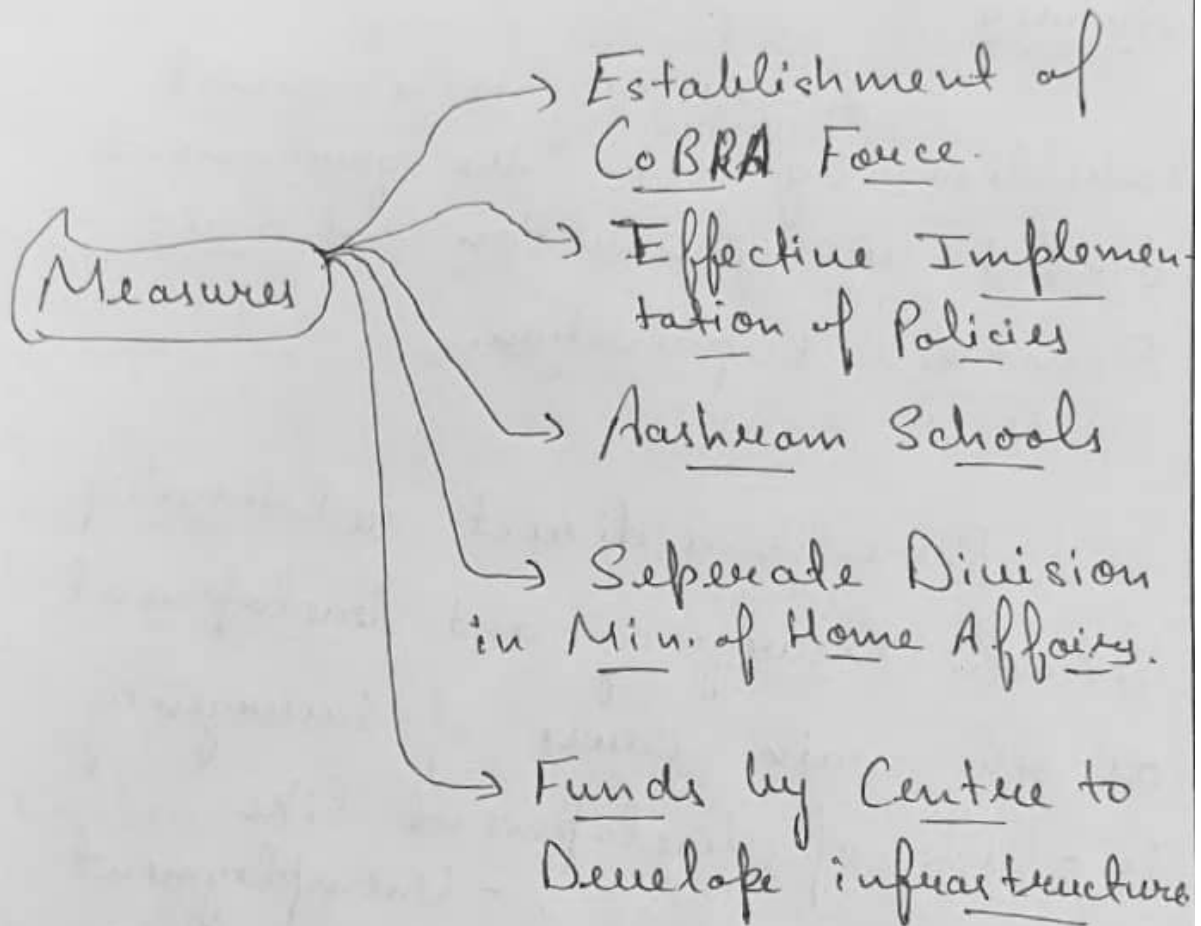 Establishment of
CoBRA Force.
Measures
Effective Implemen-
tation of Policies
Aashram Schools
Seperate Division
in Min. of Home Affairs.
Funds by Centre to
Develope infrastructure